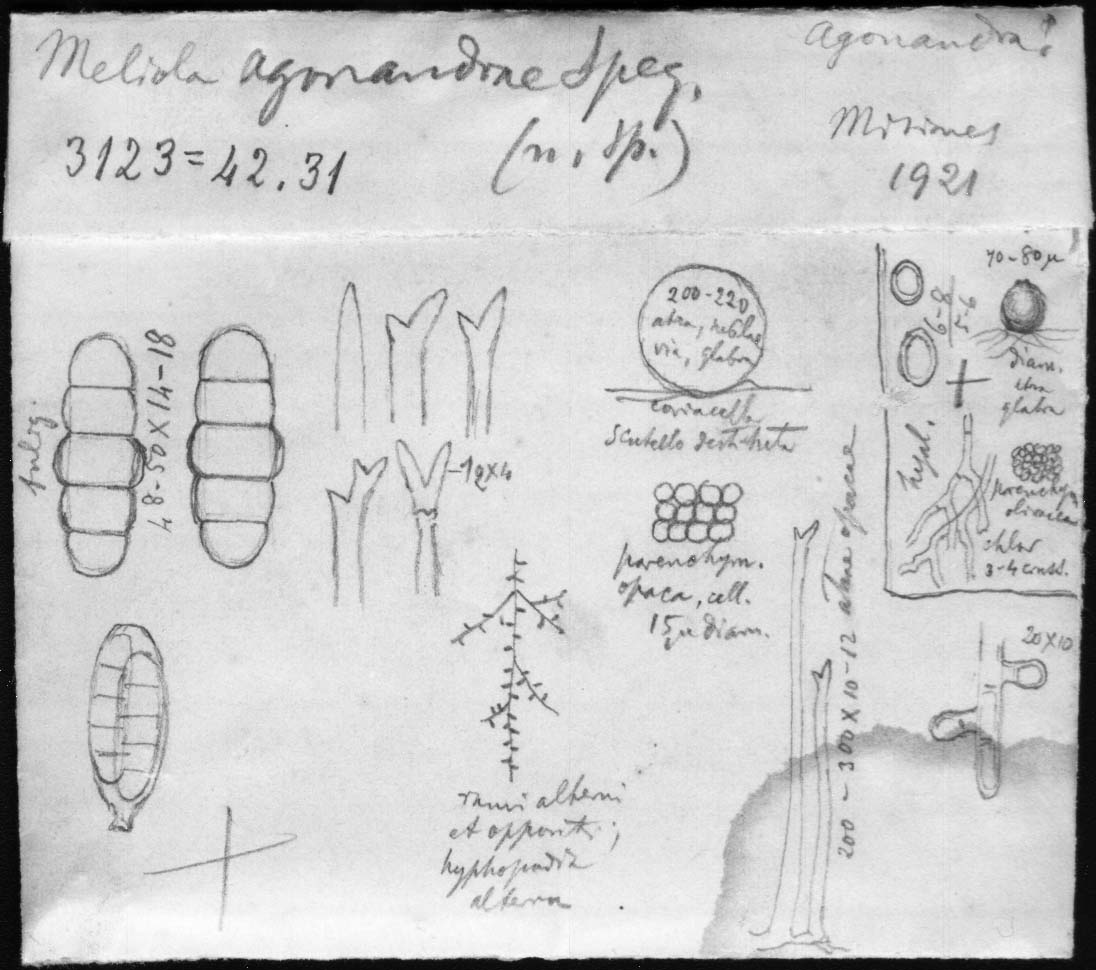 Meliola agonandrae Speg.
(n. sp.)
3123=42.31
Agonandra?
Misiones
1921
fulig.
48-50×14-18
12×4
200-220
atra,
glabra
coriacella
Scutello destituta
parenchym.
opaca, cell.
15µ diam.
rami alterni
et oppositi;
hyphopodia
alterna
200-300×10-12 atrae opacae
6-8
5-6
70-80µ
diam.
atra
glabra
hyal.
parenchym.
olivacea
chlor
3-4 crass.
20×10